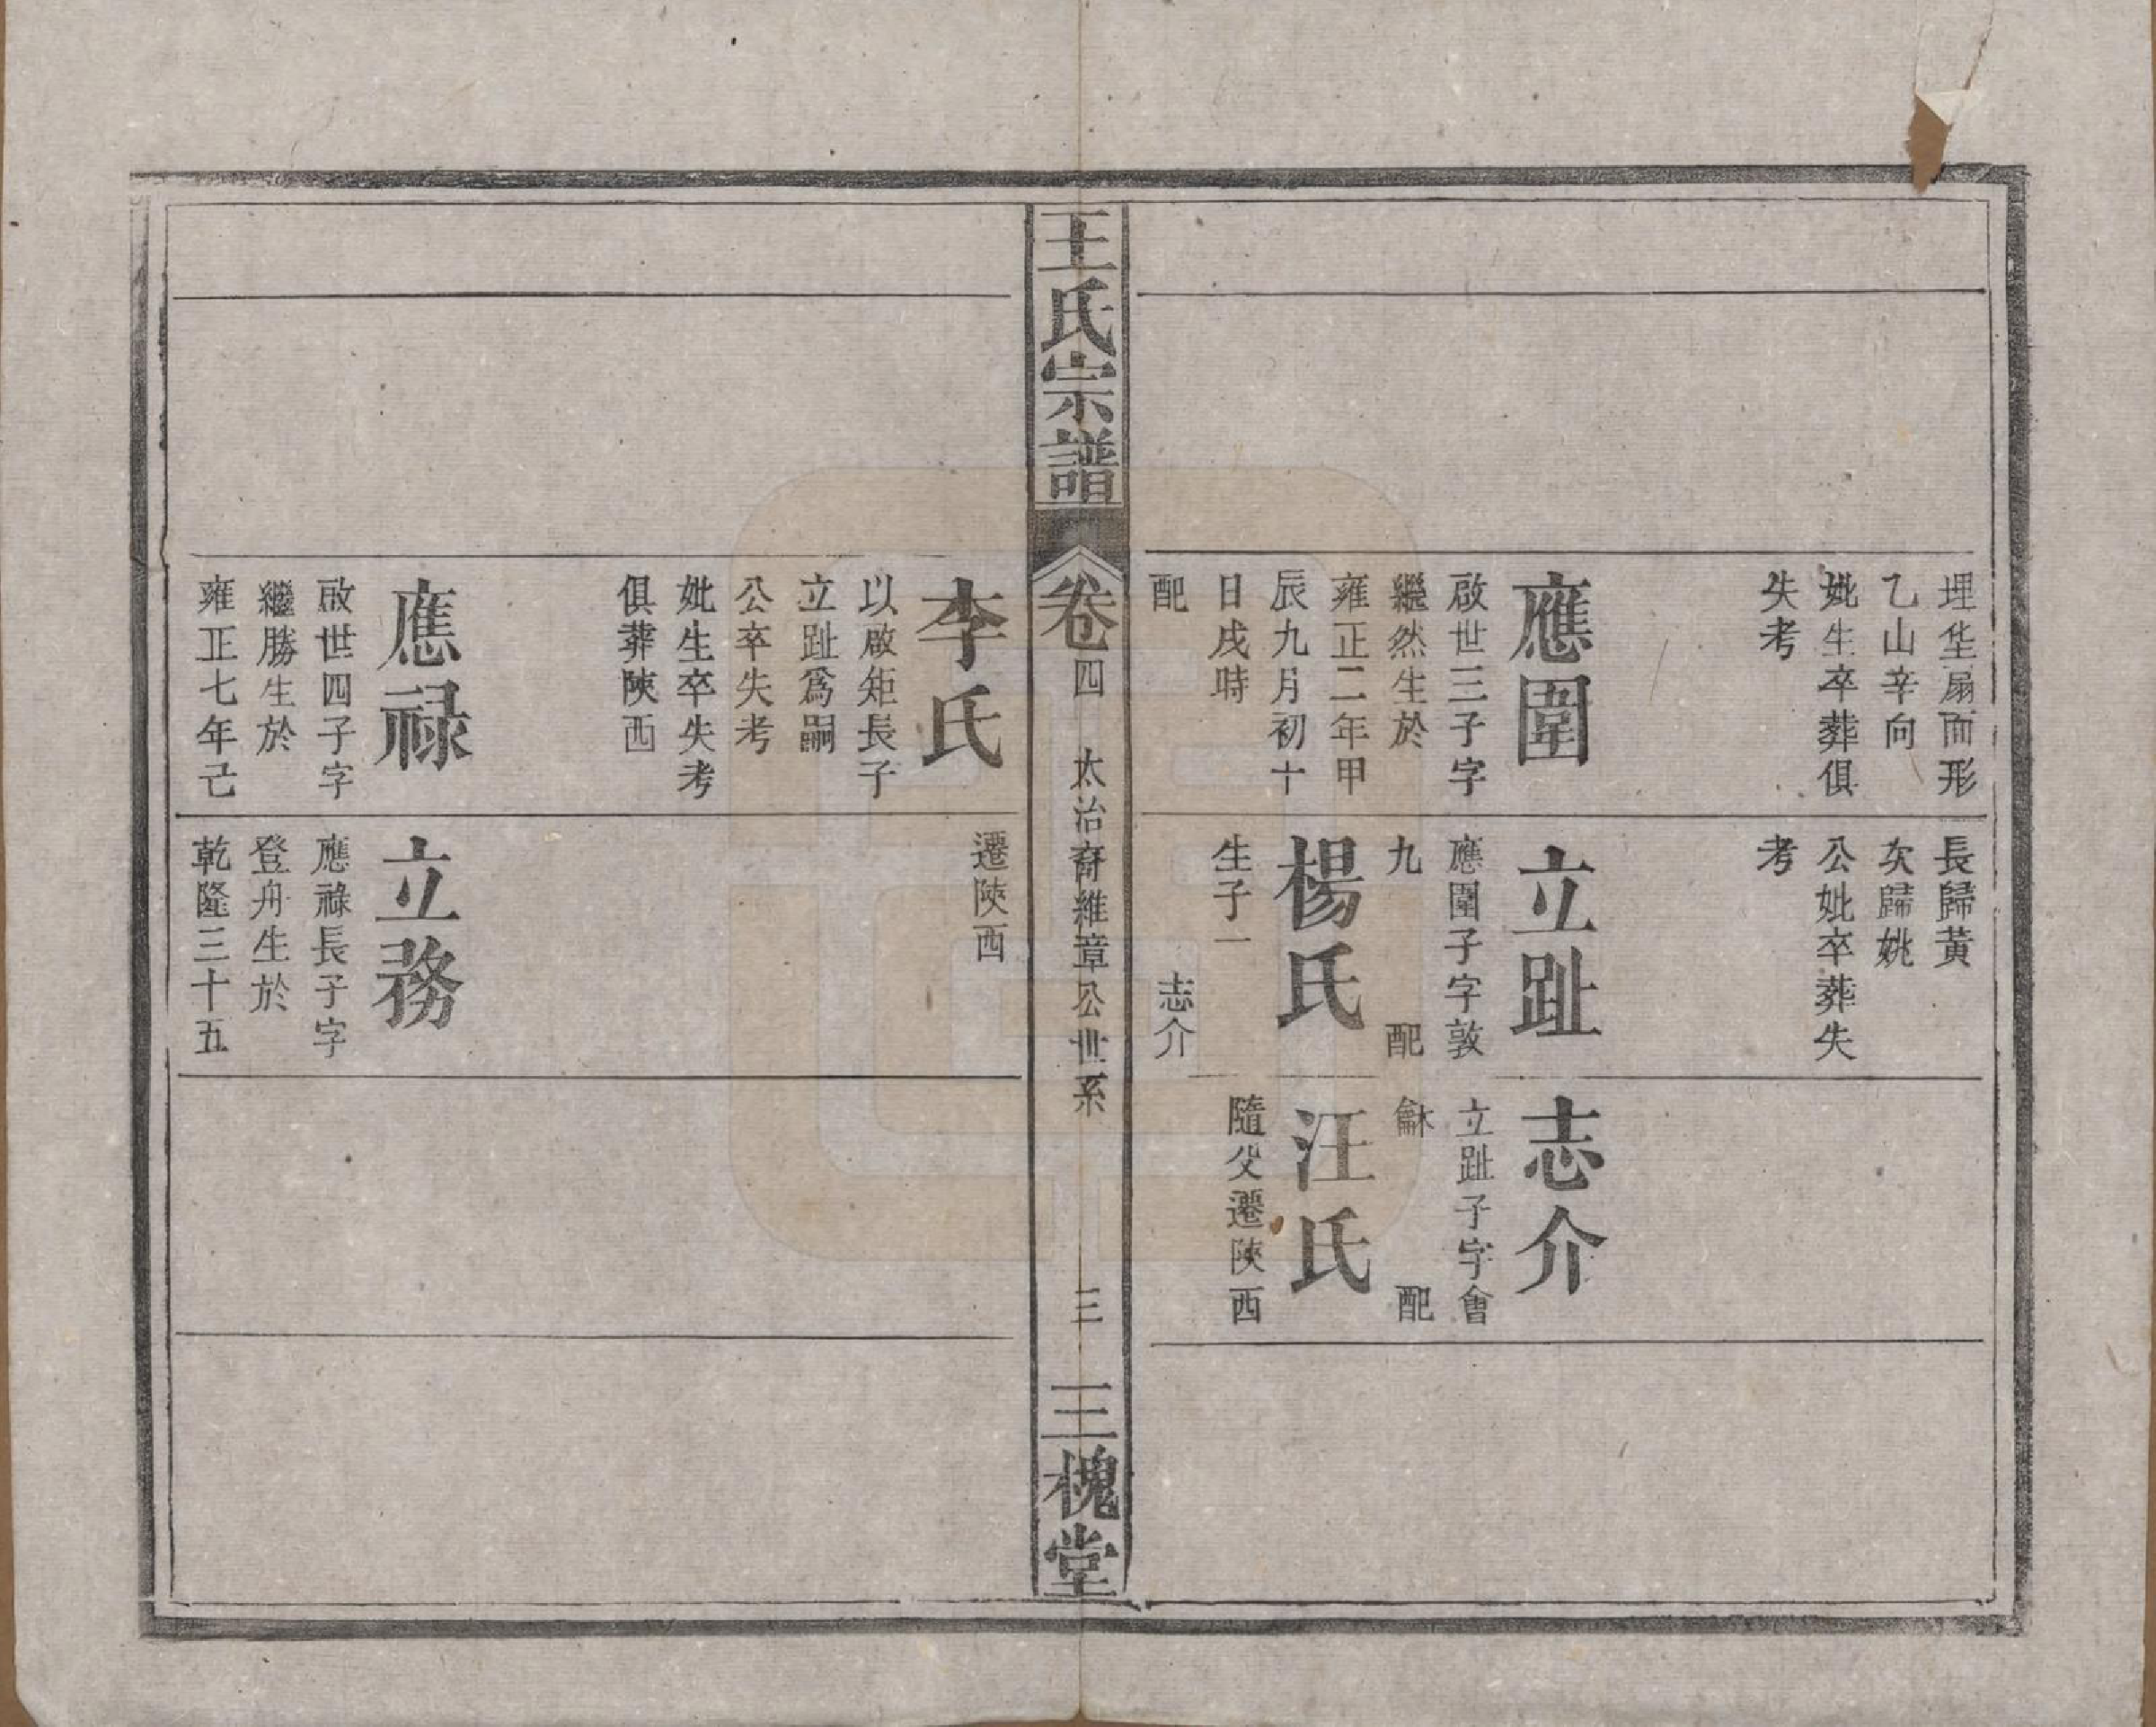 埋坐扇面形
乙山辛向
妣生卒葬俱
失考
應圍
啟世三子字
繼然生於
雍正二年甲
辰九月初十
日戌時
配
長歸黃
次歸姚
公妣卒葬失
考
立趾
應圍子字敦
九
配
楊氏
生子一
志介
志介
立趾子字會
龢
配
汪氏
隨父遷陝西
王氏宗譜
卷四
太治裔維章公世系
三
三槐堂
李氏
以啟矩長子
立趾爲嗣
公卒失考
妣生卒失考
俱葬陝西
應祿
啟世四子字
繼勝生於
雍正七年己
遷陝西
立務
應祿長子字
登舟生於
乾隆三十五